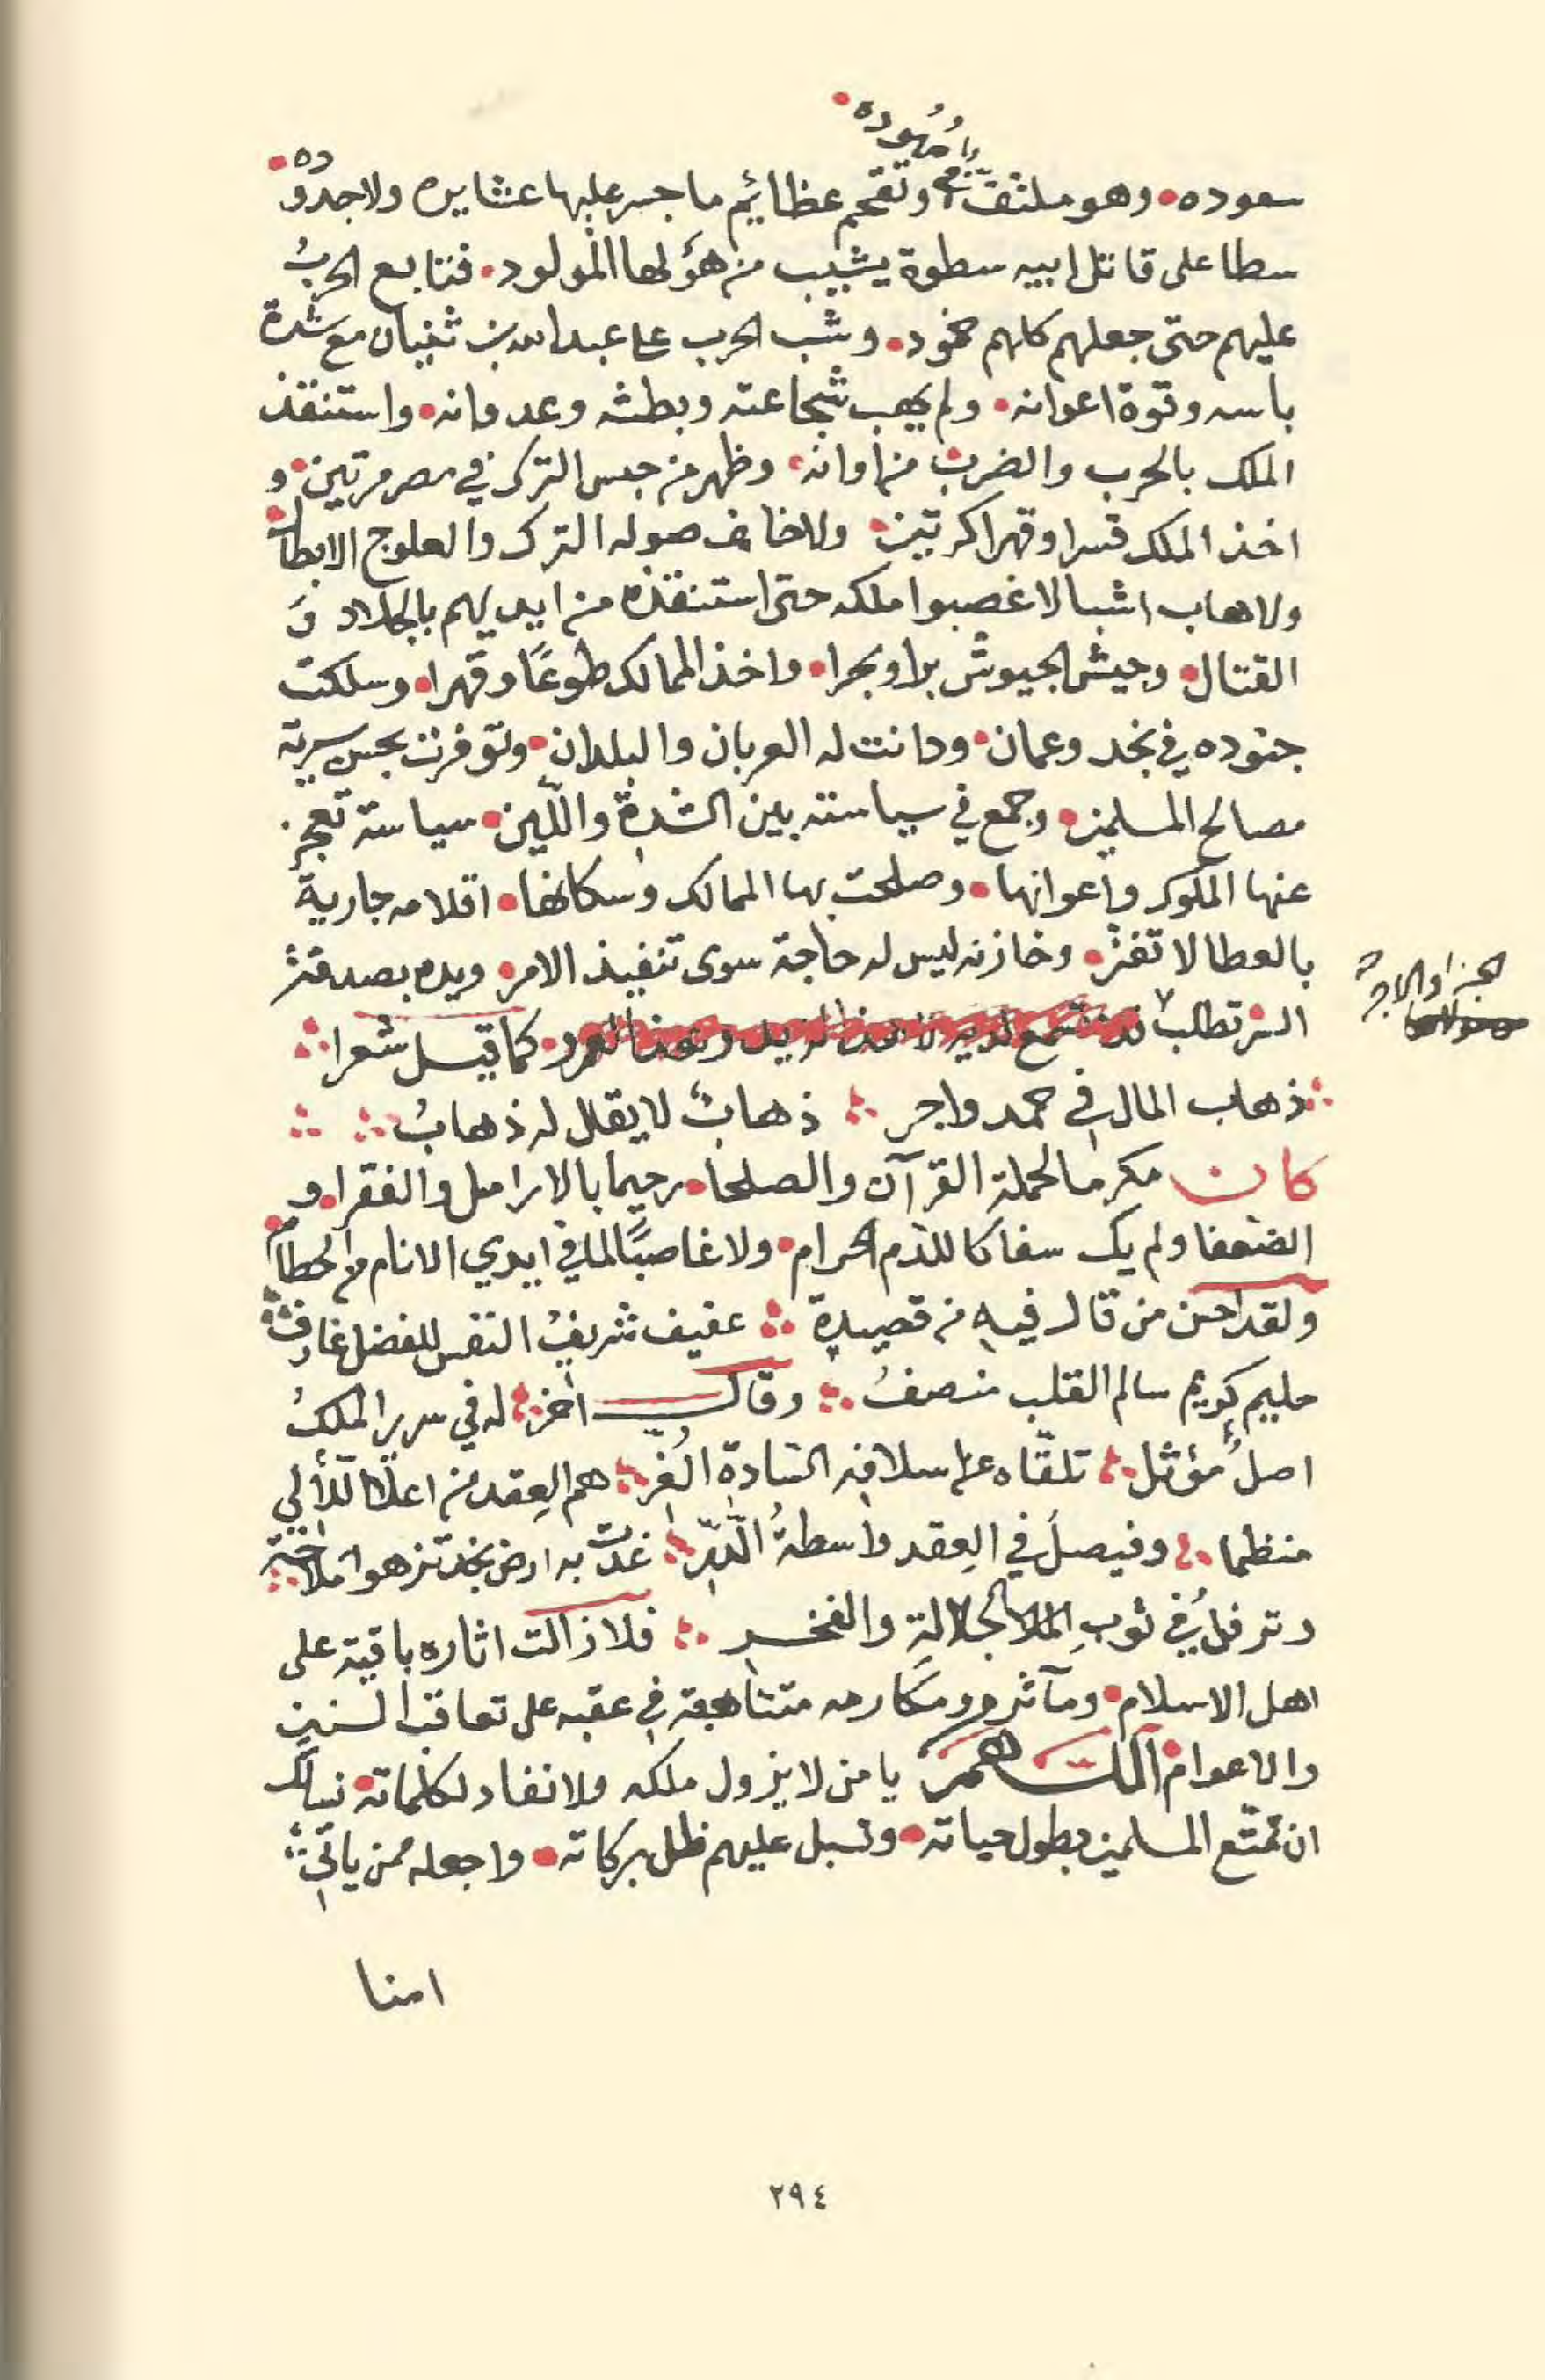 بامهوده •
سعوده • وهو ملتف وتقحم عظائم ما جسر عليها عشايره ولا جدوده •
سطا على قاتل ابيه سطوة يشيب من هؤلها المولود • فتتابع الحربُ
عليهم حتى جعلهم كلهم خمود • وشب الحرب على عبدالله بن ثنيان مع شدة
باسه وقوة اعوانه • ولم يهب شجاعته وبطشه وعدوانه • واستنقذ
الملك بالحرب والضرب من اوانه • وظهر من حبس الترك في مصر مرتين • و
اخذ الملك قسرا وقهرا كرتين • ولا خاف صوله الترك والعلوج الابطال •
ولا هاب اشبالا غصبوا ملكه حتى استنقذه من ايديهم بالجلاد وَ
القتال • وجيش الجيوش برا وبحرا • واخذ الممالك طوعًا وقهرا • وسلكت
جنوده في نجد وعمان • ودانت له العربان والبلدان • وتوفرت بحسن سيرته
مصالح المسلمين • وجمع في سياسته بين الشدة واللّين • سياسة تعجز
عنها الملوك واعوانها • وصلحت بها الممالك وسكانها • اقلامه جارية
بالعطا لا تفتر • وخازنه ليس له حاجة سوى تنفيذ الامر • ويده بصدقة
السر تطلب الجزا والاجر
كما قيل شعرا
ذهاب المال في حمد واجر ذهابٌ لا يقال له ذهابُ
كان مكرما لحملة القرآن والصلحا • رحيما بالارامل والفقرا • و
الضعفا ولم يك سفاكا للدم الحرام • ولا غاصبًا لما في ايدي الانام من الحطام •
ولقد احسن من قال فيه من قصيدة عفيف شريفُ النفس للفضل عارفٌ
حليم كريم سالم القلب منصفُ وقال اخر له في سرير الملكُ
اصلٌ مؤثل تلقّاه عن اسلافه السادة الغُرِّ هم العِقد من اعلا اللّألي
منظما وفيصلُ في العِقد واسطةُ الدُّرّ غدت به ارض نجد تزهوا ملاحة
وترفلُ في ثوبِ الجلالةِ والفخر فلا زالت اثاره باقية على
اهل الاسلام • ومآثره ومكارمه متتابعة في عقبه على تعاقب السنين
والاعوام • اللهم يا من لا يزول ملكه ولا نفاد لكلماته • نسالك
ان تمتّع المسلمين بطول حياته • وتسبل عليهم ظل بركاته • واجعله ممن ياتي
امنا
٢٩٤